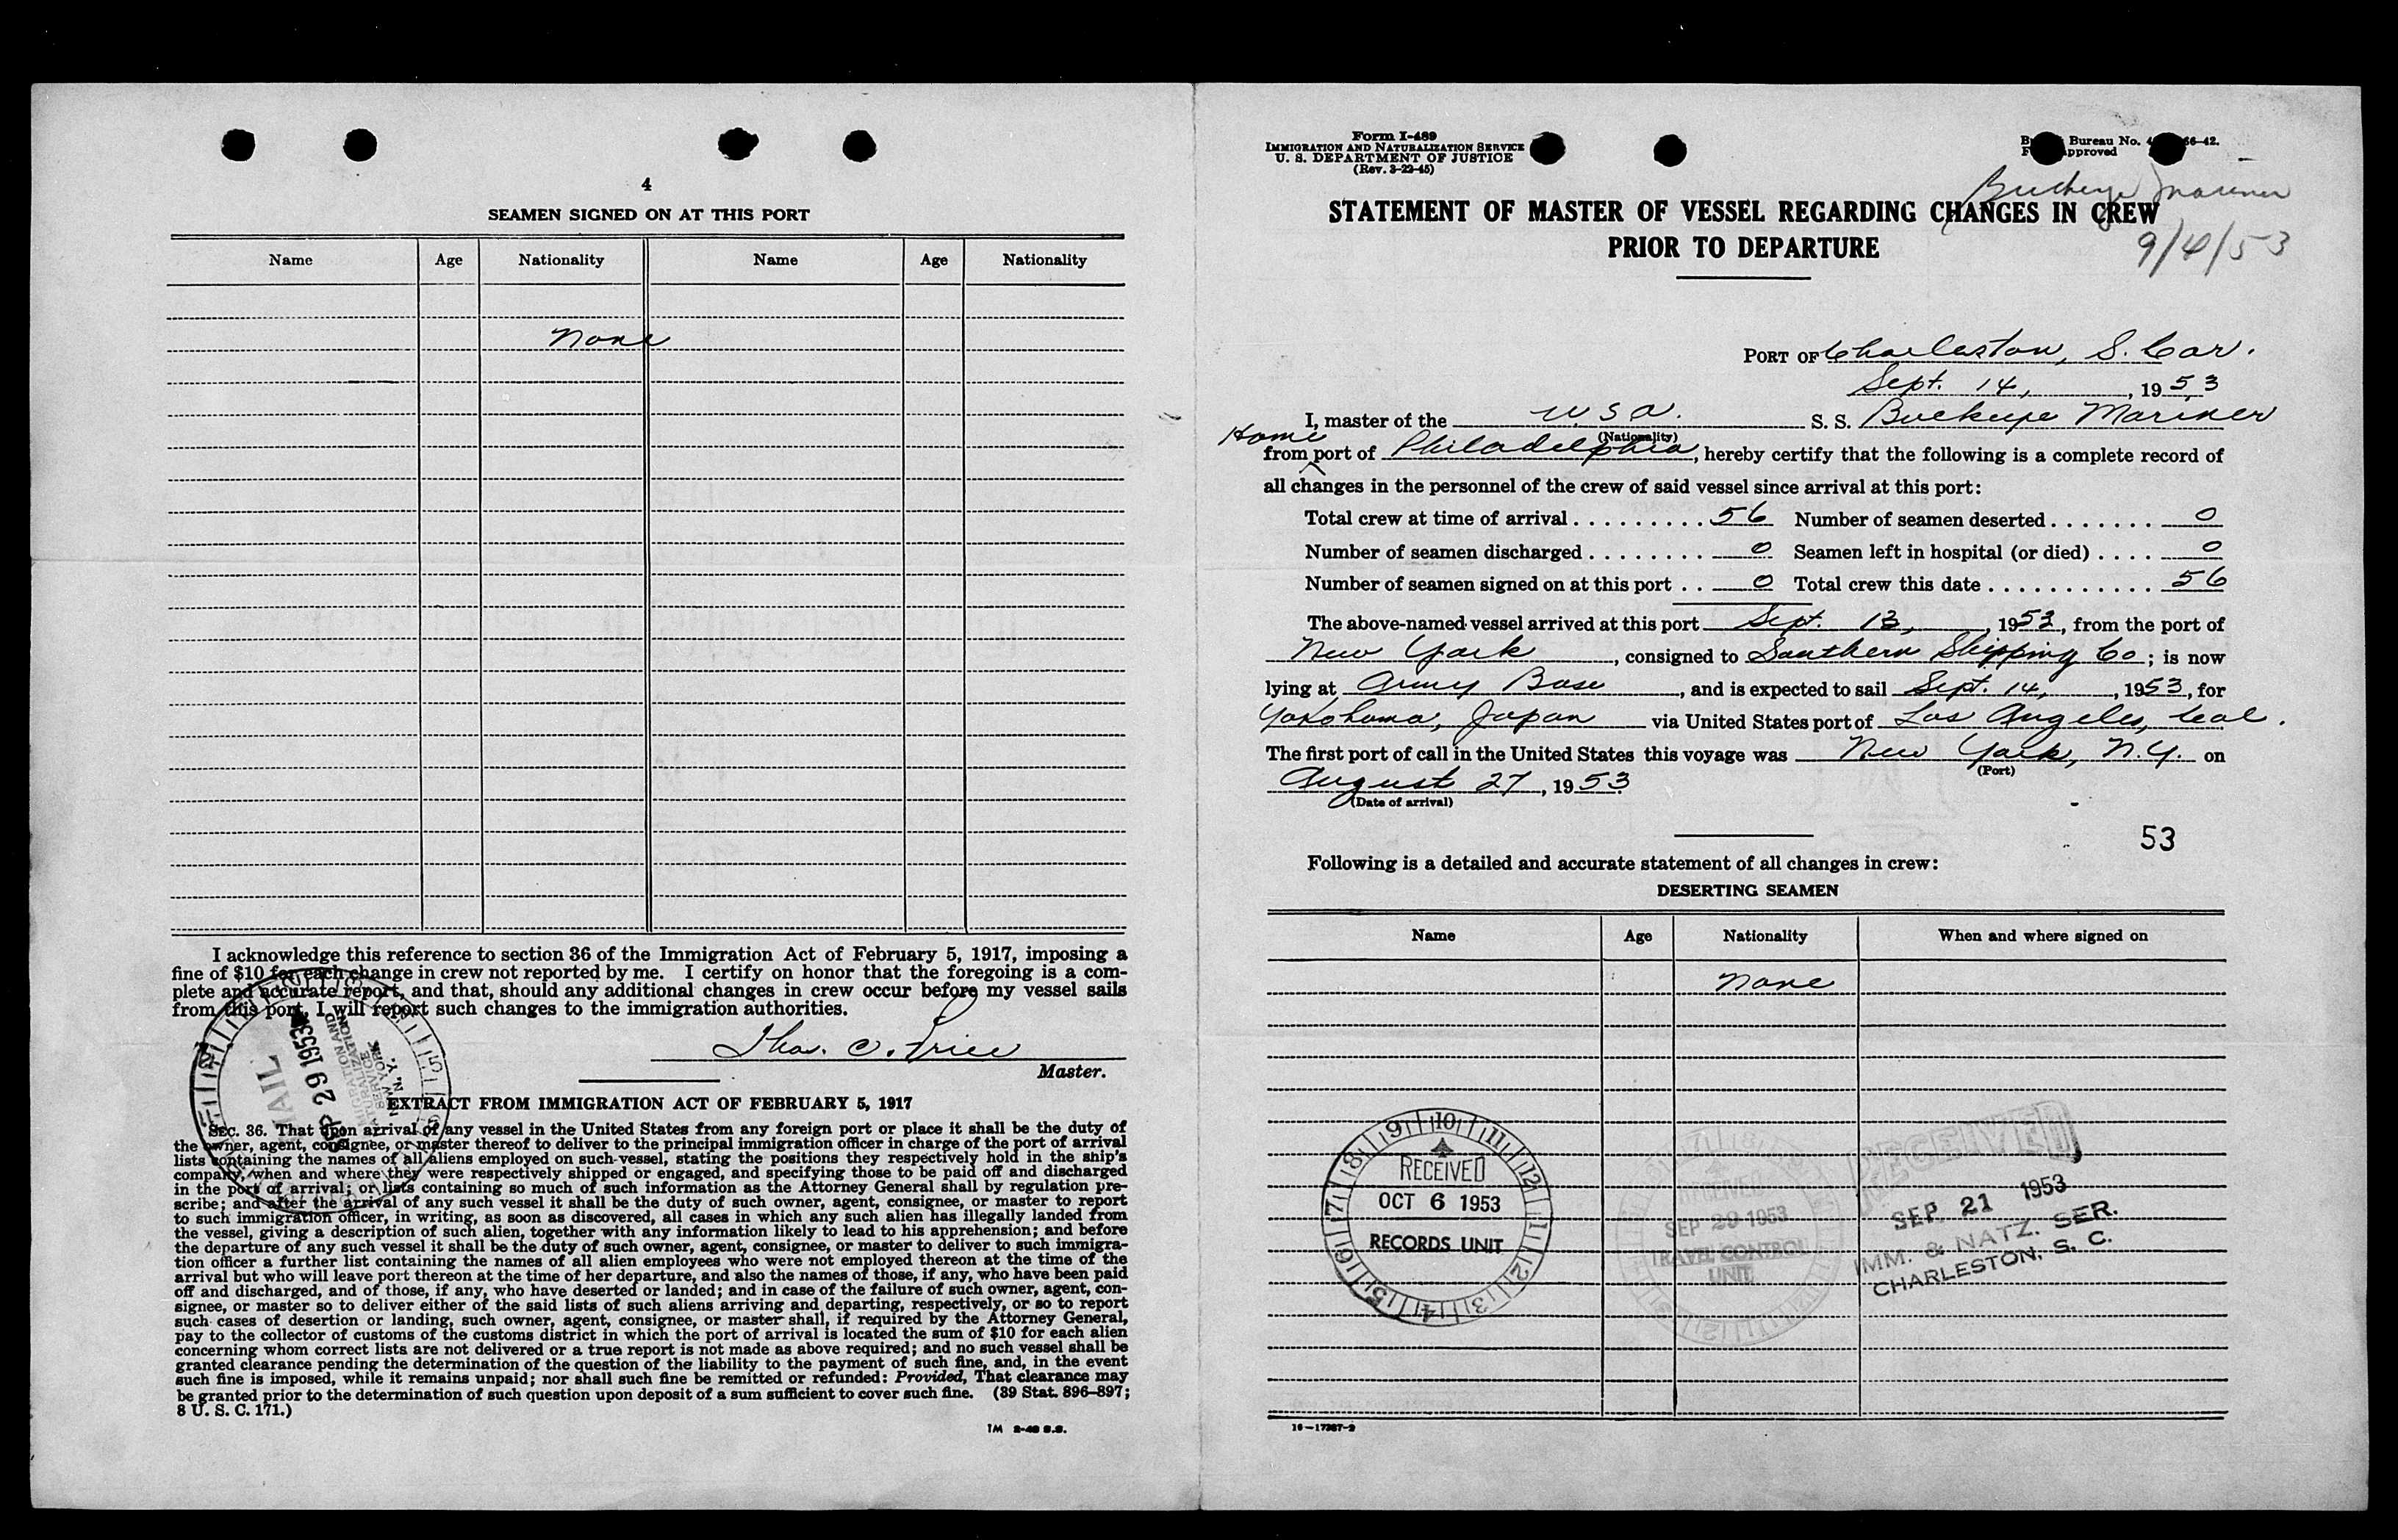 4
SEAMEN SIGNED ON AT THIS PORT
Name Age Nationality Name Age Nationality
None
I acknowledge this reference to section 36 of the Immigration Act of February 5, 1917, imposing a
fine of $10 for each change in crew not reported by me. I certify on honor that the foregoing is a com-
plete and accurate report, and that, should any additional changes in crew occur before my vessel sails
from this port, I will report such changes to the immigration authorities.
Thos. C. Price
Master.
MAIL
SEP 29 1953
IMMIGRATION AND
NATURALIZATION
SERVICE
NEW YORK
N. Y.
EXTRACT FROM IMMIGRATION ACT OF FEBRUARY 5, 1917
SEC. 36. That upon arrival of any vessel in the United States from any foreign port or place it shall be the duty of
the owner, agent, consignee, or master thereof to deliver to the principal immigration officer in charge of the port of arrival
lists containing the names of all aliens employed on such vessel, stating the positions they respectively hold in the ship's
company, when and where they were respectively shipped or engaged, and specifying those to be paid off and discharged
in the port of arrival; or lists containing so much of such information as the Attorney General shall by regulation pre-
scribe; and after the arrival of any such vessel it shall be the duty of such owner, agent, consignee, or master to report
to such immigration officer, in writing, as soon as discovered, all cases in which any such alien has illegally landed from
the vessel, giving a description of such alien, together with any information likely to lead to his apprehension; and before
the departure of any such vessel it shall be the duty of such owner, agent, consignee, or master to deliver to such immigra-
tion officer a further list containing the names of all alien employees who were not employed thereon at the time of the
arrival but who will leave port thereon at the time of her departure, and also the names of those, if any, who have been paid
off and discharged, and of those, if any, who have deserted or landed; and in case of the failure of such owner, agent, con-
signee, or master so to deliver either of the said lists of such aliens arriving and departing, respectively, or so to report
such cases of desertion or landing, such owner, agent, consignee, or master shall, if required by the Attorney General,
pay to the collector of customs of the customs district in which the port of arrival is located the sum of $10 for each alien
concerning whom correct lists are not delivered or a true report is not made as above required; and no such vessel shall be
granted clearance pending the determination of the question of the liability to the payment of such fine, and, in the event
such fine is imposed, while it remains unpaid; nor shall such fine be remitted or refunded: Provided, That clearance may
be granted prior to the determination of such question upon deposit of a sum sufficient to cover such fine. (39 Stat. 896–897;
8 U. S. C. 171.)
Form I-489
IMMIGRATION AND NATURALIZATION SERVICE
U. S. DEPARTMENT OF JUSTICE
(Rev. 3-22-45)
Bureau No.
pproved
Buckeye Mariner
9/4/53
STATEMENT OF MASTER OF VESSEL REGARDING CHANGES IN CREW
PRIOR TO DEPARTURE
PORT OF Charleston, S. Car.
Sept. 14, , 1953
I, master of the U S A. S. S. Buckeye Mariner
(Nationality)
Home
from port of Philadelphia, hereby certify that the following is a complete record of
all changes in the personnel of the crew of said vessel since arrival at this port:
Total crew at time of arrival . . . . . . . . . 56 Number of seamen deserted . . . . . . . 0
Number of seamen discharged . . . . . . . . 0 Seamen left in hospital (or died) . . . . 0
Number of seamen signed on at this port . . 0 Total crew this date . . . . . . . . . . . 56
The above-named vessel arrived at this port Sept. 13, , 1953, from the port of
New York, consigned to Southern Shipping Co; is now
lying at Army Base, and is expected to sail Sept. 14, , 1953, for
Yokohama, Japan via United States port of Los Angeles, Cal.
The first port of call in the United States this voyage was New York, N.Y. on
(Port)
August 27, 1953
(Date of arrival)
53
Following is a detailed and accurate statement of all changes in crew:
DESERTING SEAMEN
Name Age Nationality When and where signed on
None
RECEIVED
OCT 6 1953
RECORDS UNIT
RECEIVED
SEP 29 1953
TRAVEL CONTROL
UNIT
RECEIVED
SEP 21 1953
IMM. & NATZ. SER.
CHARLESTON, S. C.